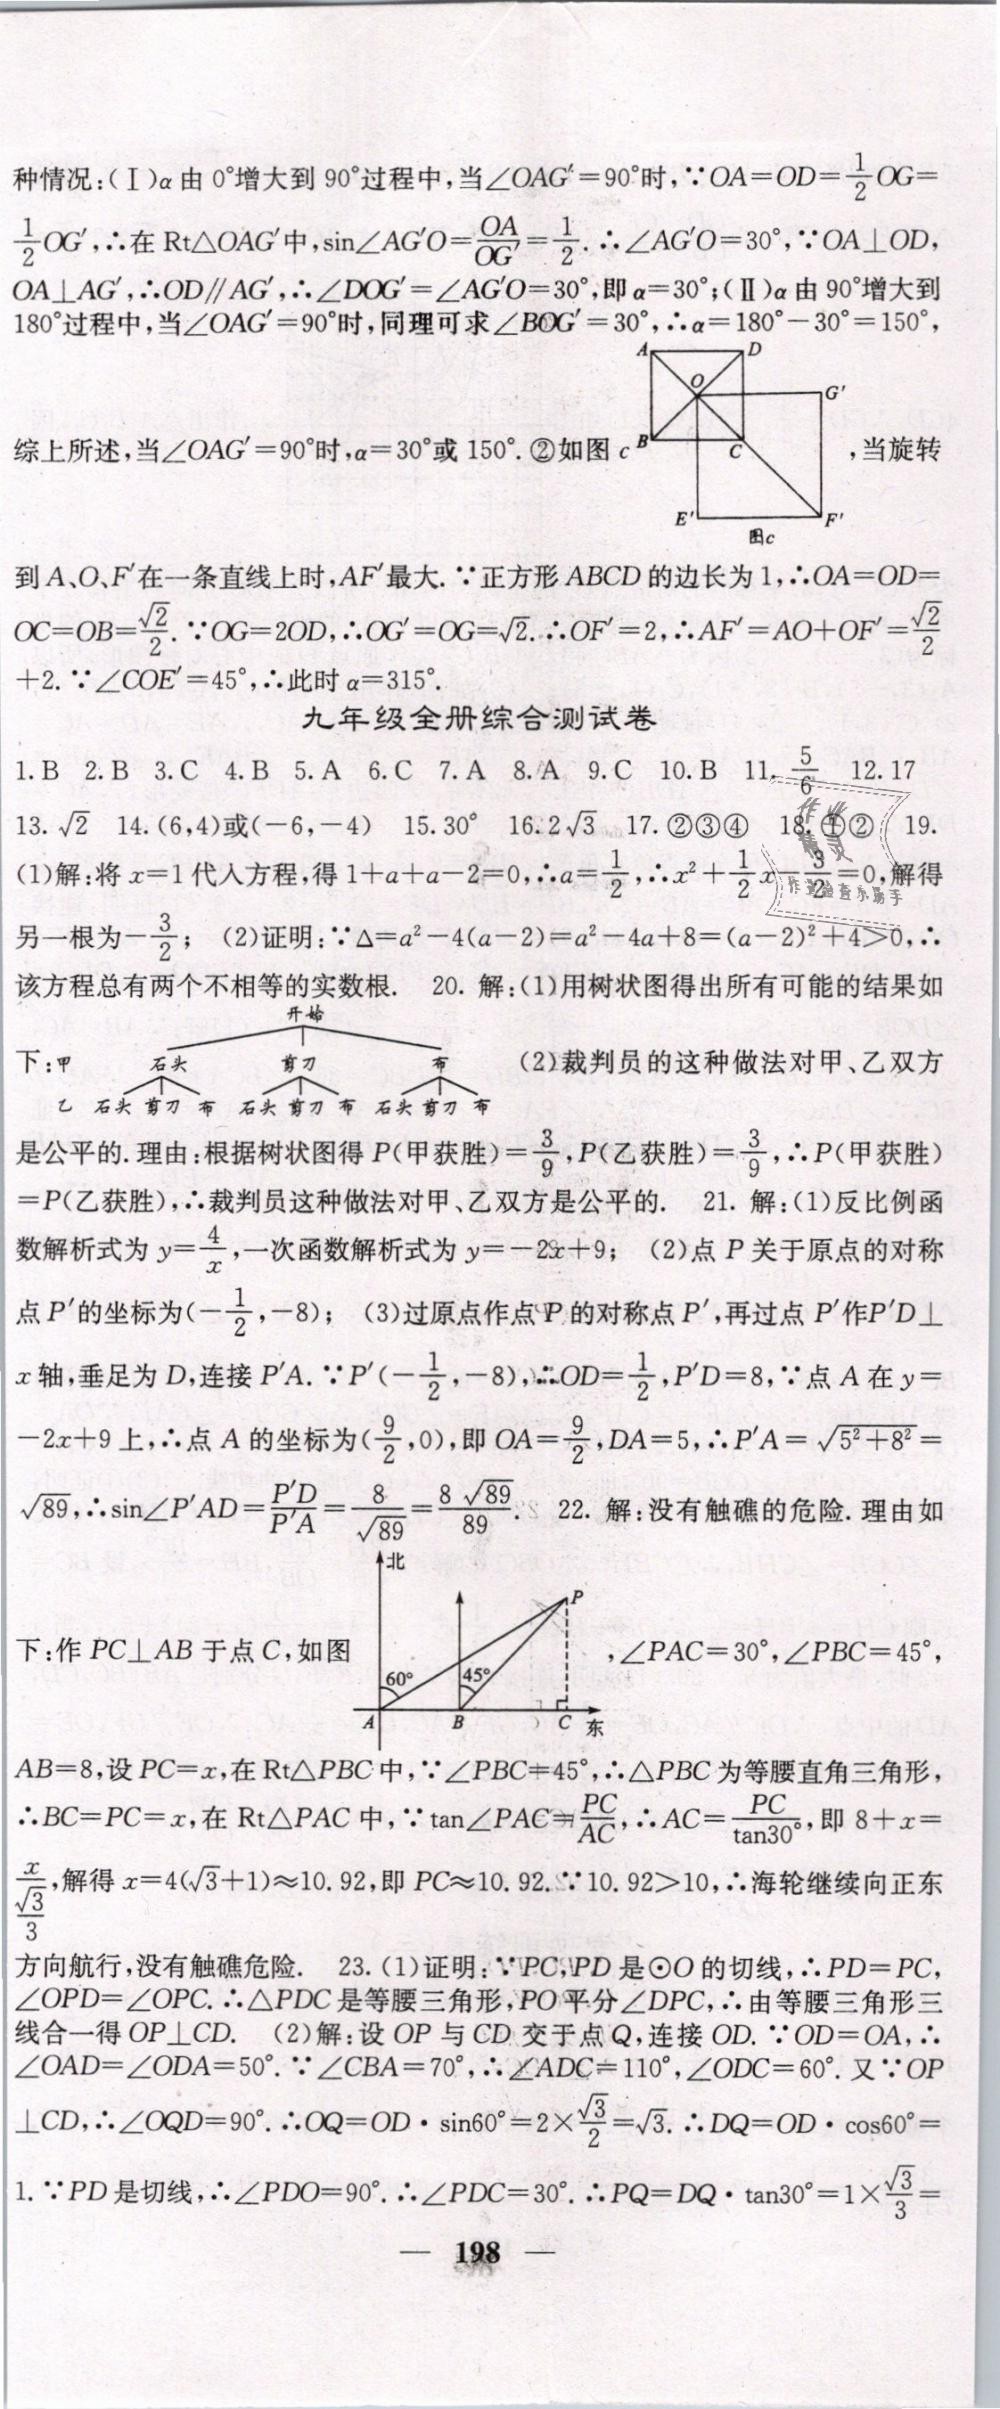 种情况:(Ⅰ)α由0°增大到90°过程中,当∠OAG′=90°时,∵OA=OD=1/2OG=
1/2OG′,∴在Rt△OAG′中,sin∠AG′O=OA/OG′=1/2.∴∠AG′O=30°,∵OA⊥OD,
OA⊥AG′,∴OD∥AG′,∴∠DOG′=∠AG′O=30°,即α=30°;(Ⅱ)α由90°增大到
180°过程中,当∠OAG′=90°时,同理可求∠BOG′=30°,∴α=180°-30°=150°,
A D
O G′
综上所述,当∠OAG′=90°时,α=30°或150°.②如图c B C ,当旋转
E′ F′
图c
到A、O、F′在一条直线上时,AF′最大.∵正方形ABCD的边长为1,∴OA=OD=
OC=OB=√2/2.∵OG=2OD,∴OG′=OG=√2.∴OF′=2,∴AF′=AO+OF′=√2/2
+2.∵∠COE′=45°,∴此时α=315°.
九年级全册综合测试卷
1.B 2.B 3.C 4.B 5.A 6.C 7.A 8.A 9.C 10.B 11.5/6 12.17
13.√2 14.(6,4)或(-6,-4) 15.30° 16.2√3 17.②③④ 18.①② 19.
作业精灵
(1)解:将x=1代入方程,得1+a+a-2=0,∴a=1/2,∴x²+1/2x-3/2=0,解得
作业检查小助手
另一根为-3/2; (2)证明:∵Δ=a²-4(a-2)=a²-4a+8=(a-2)²+4>0,∴
该方程总有两个不相等的实数根. 20.解:(1)用树状图得出所有可能的结果如
开始
下:甲 石头 剪刀 布 (2)裁判员的这种做法对甲、乙双方
乙 石头 剪刀 布 石头 剪刀 布 石头 剪刀 布
是公平的.理由:根据树状图得P(甲获胜)=3/9,P(乙获胜)=3/9,∴P(甲获胜)
=P(乙获胜),∴裁判员这种做法对甲、乙双方是公平的. 21.解:(1)反比例函
数解析式为y=4/x,一次函数解析式为y=-2x+9; (2)点P关于原点的对称
点P′的坐标为(-1/2,-8); (3)过原点作点P的对称点P′,再过点P′作P′D⊥
x轴,垂足为D,连接P′A.∵P′(-1/2,-8),∴OD=1/2,P′D=8,∵点A在y=
-2x+9上,∴点A的坐标为(9/2,0),即OA=9/2,DA=5,∴P′A=√(5²+8²)=
√89,∴sin∠P′AD=P′D/P′A=8/√89=8√89/89. 22.解:没有触礁的危险.理由如
北
P
下:作PC⊥AB于点C,如图 ,∠PAC=30°,∠PBC=45°,
60° 45°
A B C 东
AB=8,设PC=x,在Rt△PBC中,∵∠PBC=45°,∴△PBC为等腰直角三角形,
∴BC=PC=x,在Rt△PAC中,∵tan∠PAC=PC/AC,∴AC=PC/tan30°,即8+x=
x/(√3/3),解得x=4(√3+1)≈10.92,即PC≈10.92.∵10.92>10,∴海轮继续向正东
方向航行,没有触礁危险. 23.(1)证明:∵PC,PD是⊙O的切线,∴PD=PC,
∠OPD=∠OPC.∴△PDC是等腰三角形,PO平分∠DPC,∴由等腰三角形三
线合一得OP⊥CD. (2)解:设OP与CD交于点Q,连接OD.∵OD=OA,∴
∠OAD=∠ODA=50°.∵∠CBA=70°,∴∠ADC=110°,∠ODC=60°.又∵OP
⊥CD,∴∠OQD=90°.∴OQ=OD·sin60°=2×√3/2=√3.∴DQ=OD·cos60°=
1.∵PD是切线,∴∠PDO=90°.∴∠PDC=30°.∴PQ=DQ·tan30°=1×√3/3=
— 198 —